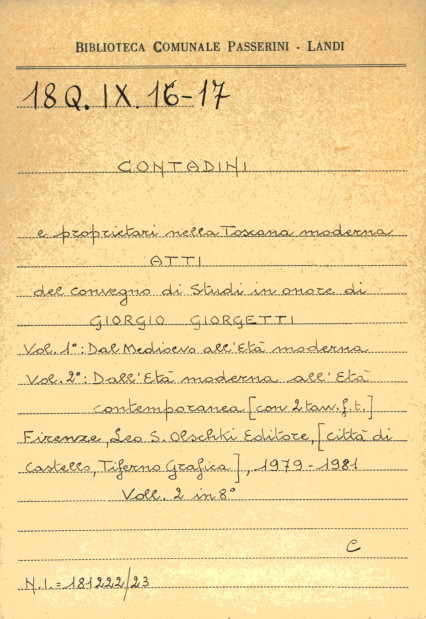 BIBLIOTECA COMUNALE PASSERINI - LANDI
18 Q. IX. 16-17
CONTADINI
e proprietari nella Toscana moderna
ATTI
del convegno di Studi in onore di
GIORGIO GIORGETTI
Vol. 1°: Dal Medioevo all'Età moderna
Vol. 2°: Dall'Età moderna all'Età
contemporanea [con 2 tavv. f. t.]
Firenze, Leo S. Olschki Editore, [città di
Castello, Tiferno Grafica], 1979-1981
Voll. 2 in 8°
C
N.I. = 181222/23